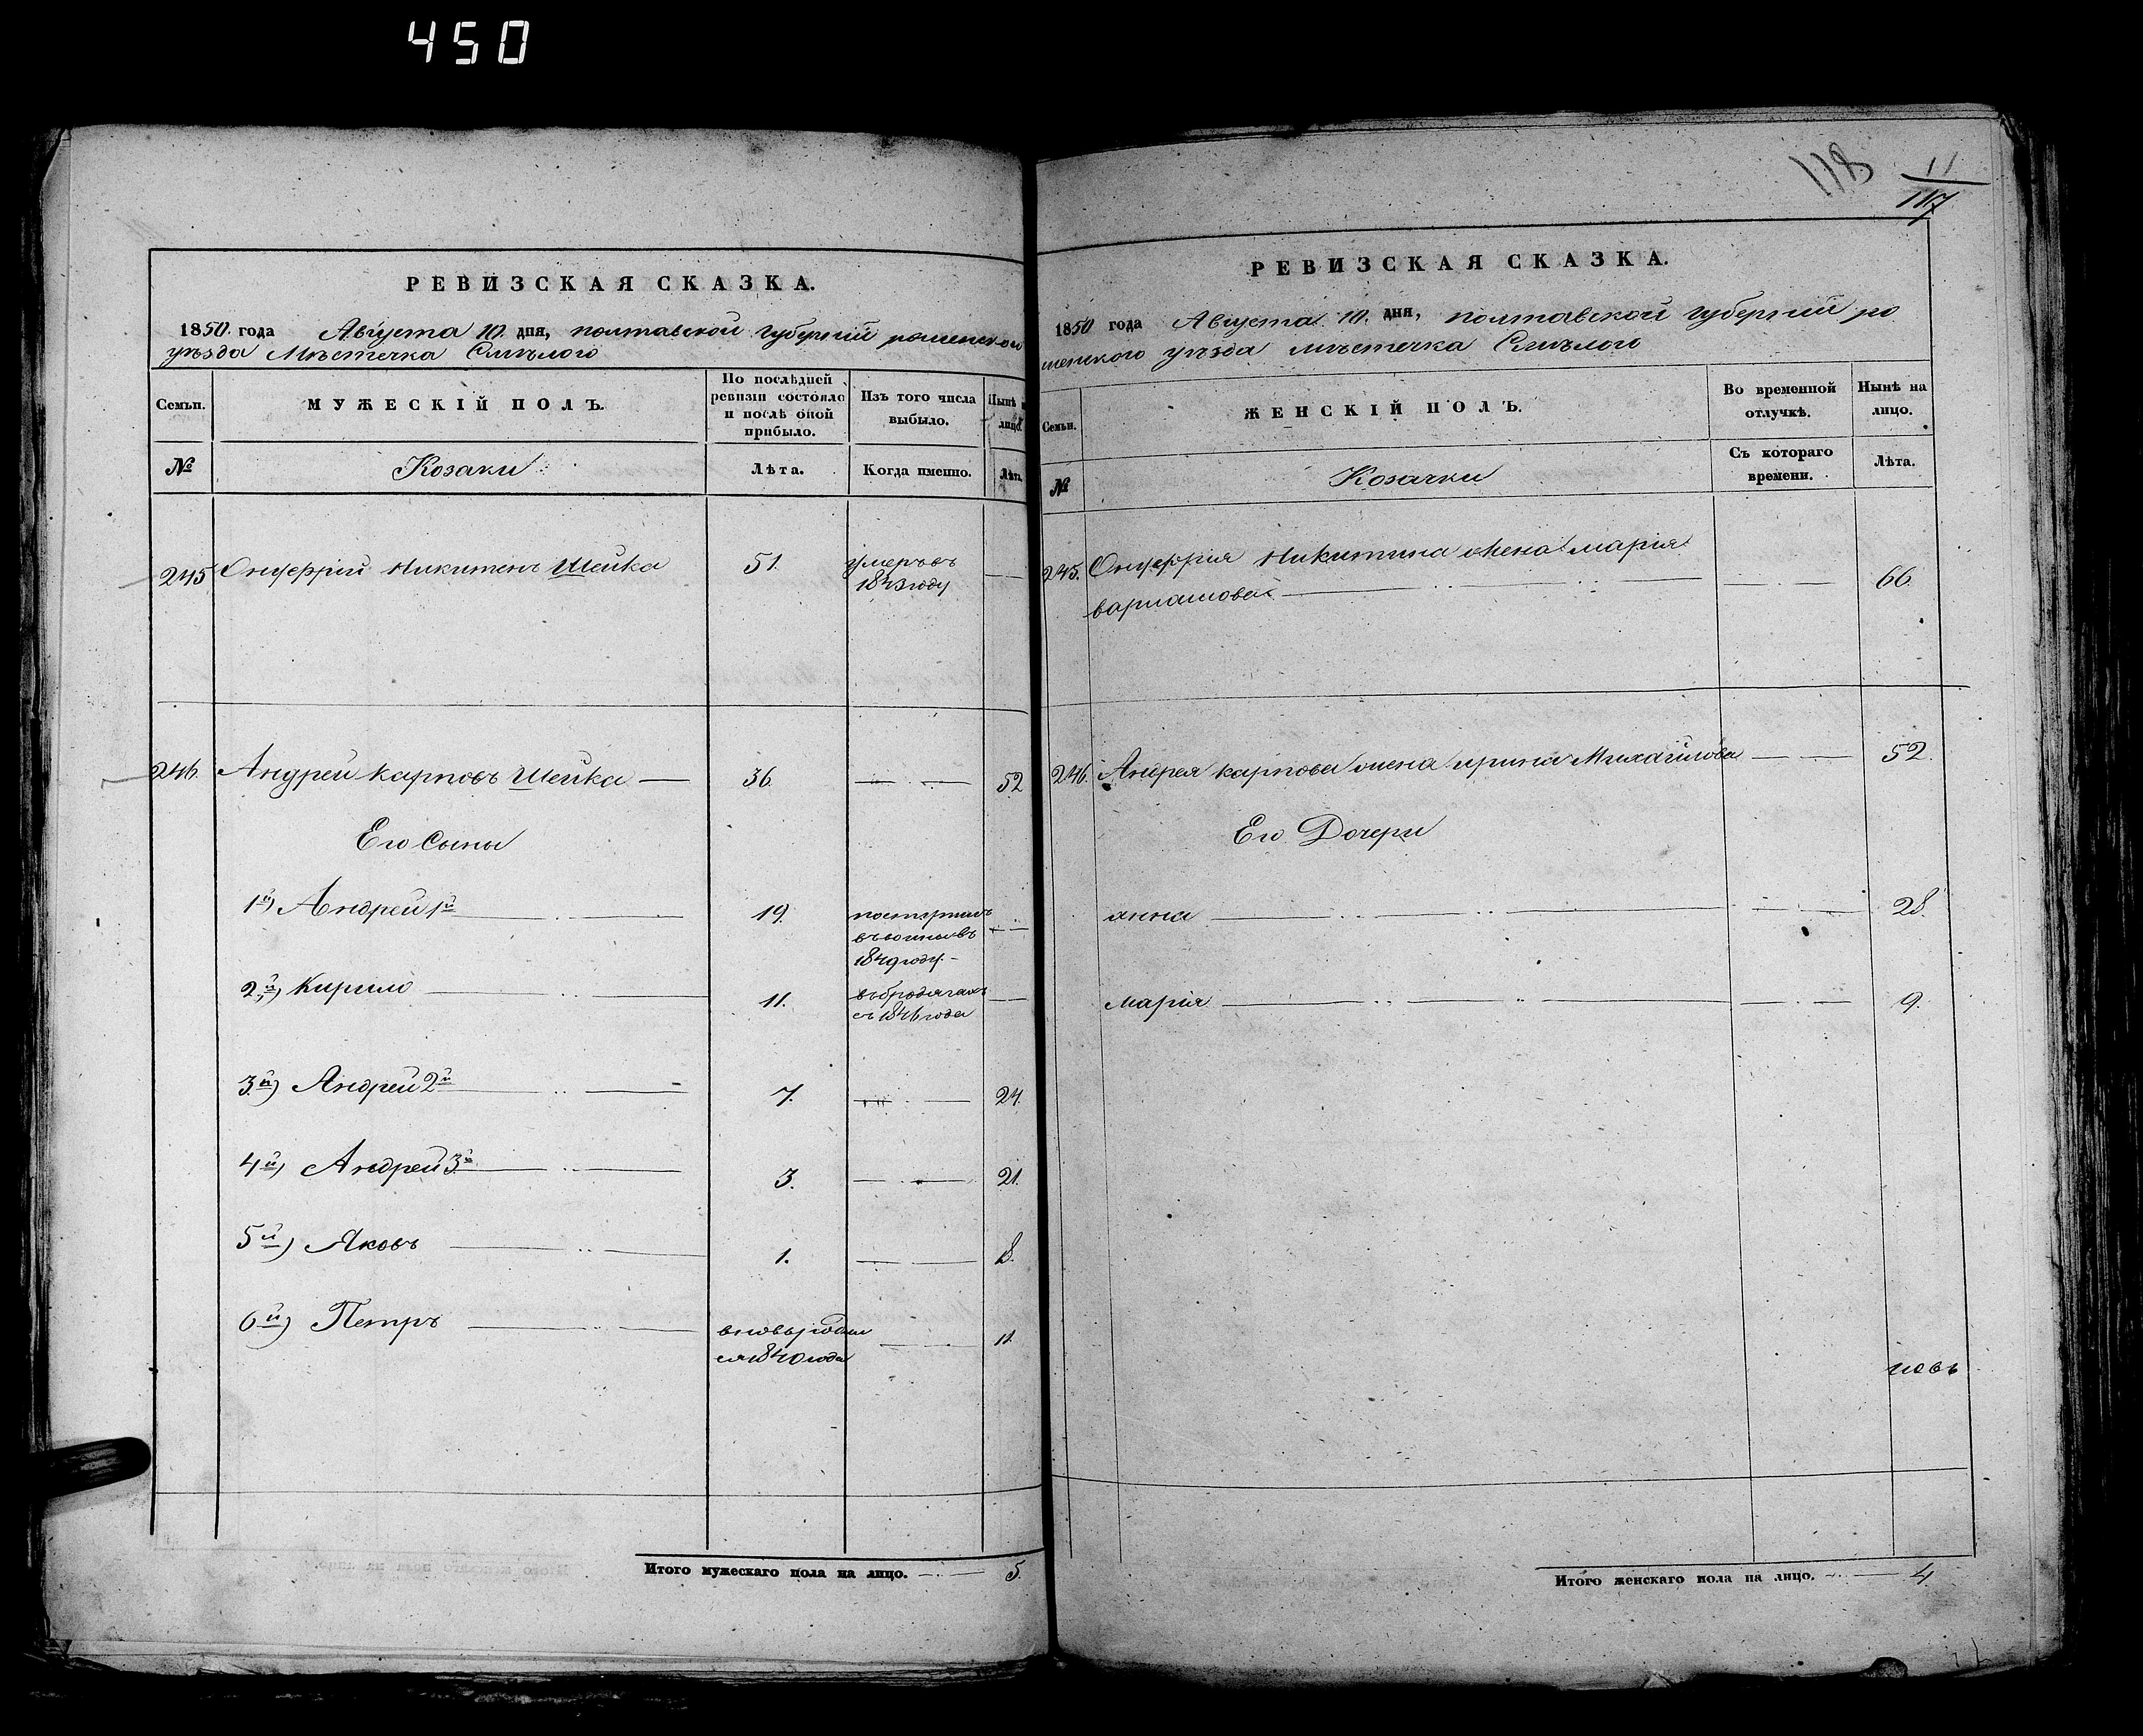 450
РЕВИЗСКАЯ СКАЗКА.
1850 года Августа 10 дня, полтавской губерній роменского
уѣзда Мѣстечка Смѣлого
Семьи.
МУЖЕСКІЙ ПОЛЪ.
По послѣдней ревизіи состояло и послѣ оной прибыло.
Изъ того числа выбыло.
Нынѣ на лицо.
№
Козаки
Лѣта.
Когда именно.
Лѣта.
245 Онуфрій Никитенъ Шейка 51. умеръ въ
1843 году
246. Андрей карповъ Шейка 36. 52
Его Сыны
1й) Андрей 1й 19. поступилъ
въ
1849 году.
2й) Кирило 11. въ бродягахъ
съ 1846 года
3й) Андрей 2й 7. 24.
4й) Андрей 3й 3. 21.
5й) Яковъ 1. 18.
6й) Петръ вновь родил 11.
ся 1840 года
Итого мужескаго пола на лицо. 5.
118
11
117
РЕВИЗСКАЯ СКАЗКА.
1850 года Августа 10. дня, полтавской губерній ро
менского уѣзда мѣстечка Смѣлого
Семьи.
ЖЕНСКІЙ ПОЛЪ.
Во временной отлучкѣ.
Нынѣ на лицо.
№
Козачки
Съ котораго времени.
Лѣта.
245. Онуфрія Никитина жена марія
варламова 66.
246. Андрея карпова жена ирина Михайлова 52.
Его Дочери
анна 28.
марія 9.
Итого женскаго пола на лицо. 4.